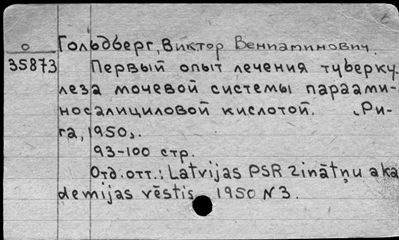 О Гольдберг, Виктор Вениаминович.
35873 Первый опыт лечения туберку-
леза мочевой системы параами-
носалициловой кислотой. „Ри-
га, 1950„.
93-100 стр.
Отд. отт.: Latvijas PSR Zinātņu aka
demijas vēstis 1950 N 3.